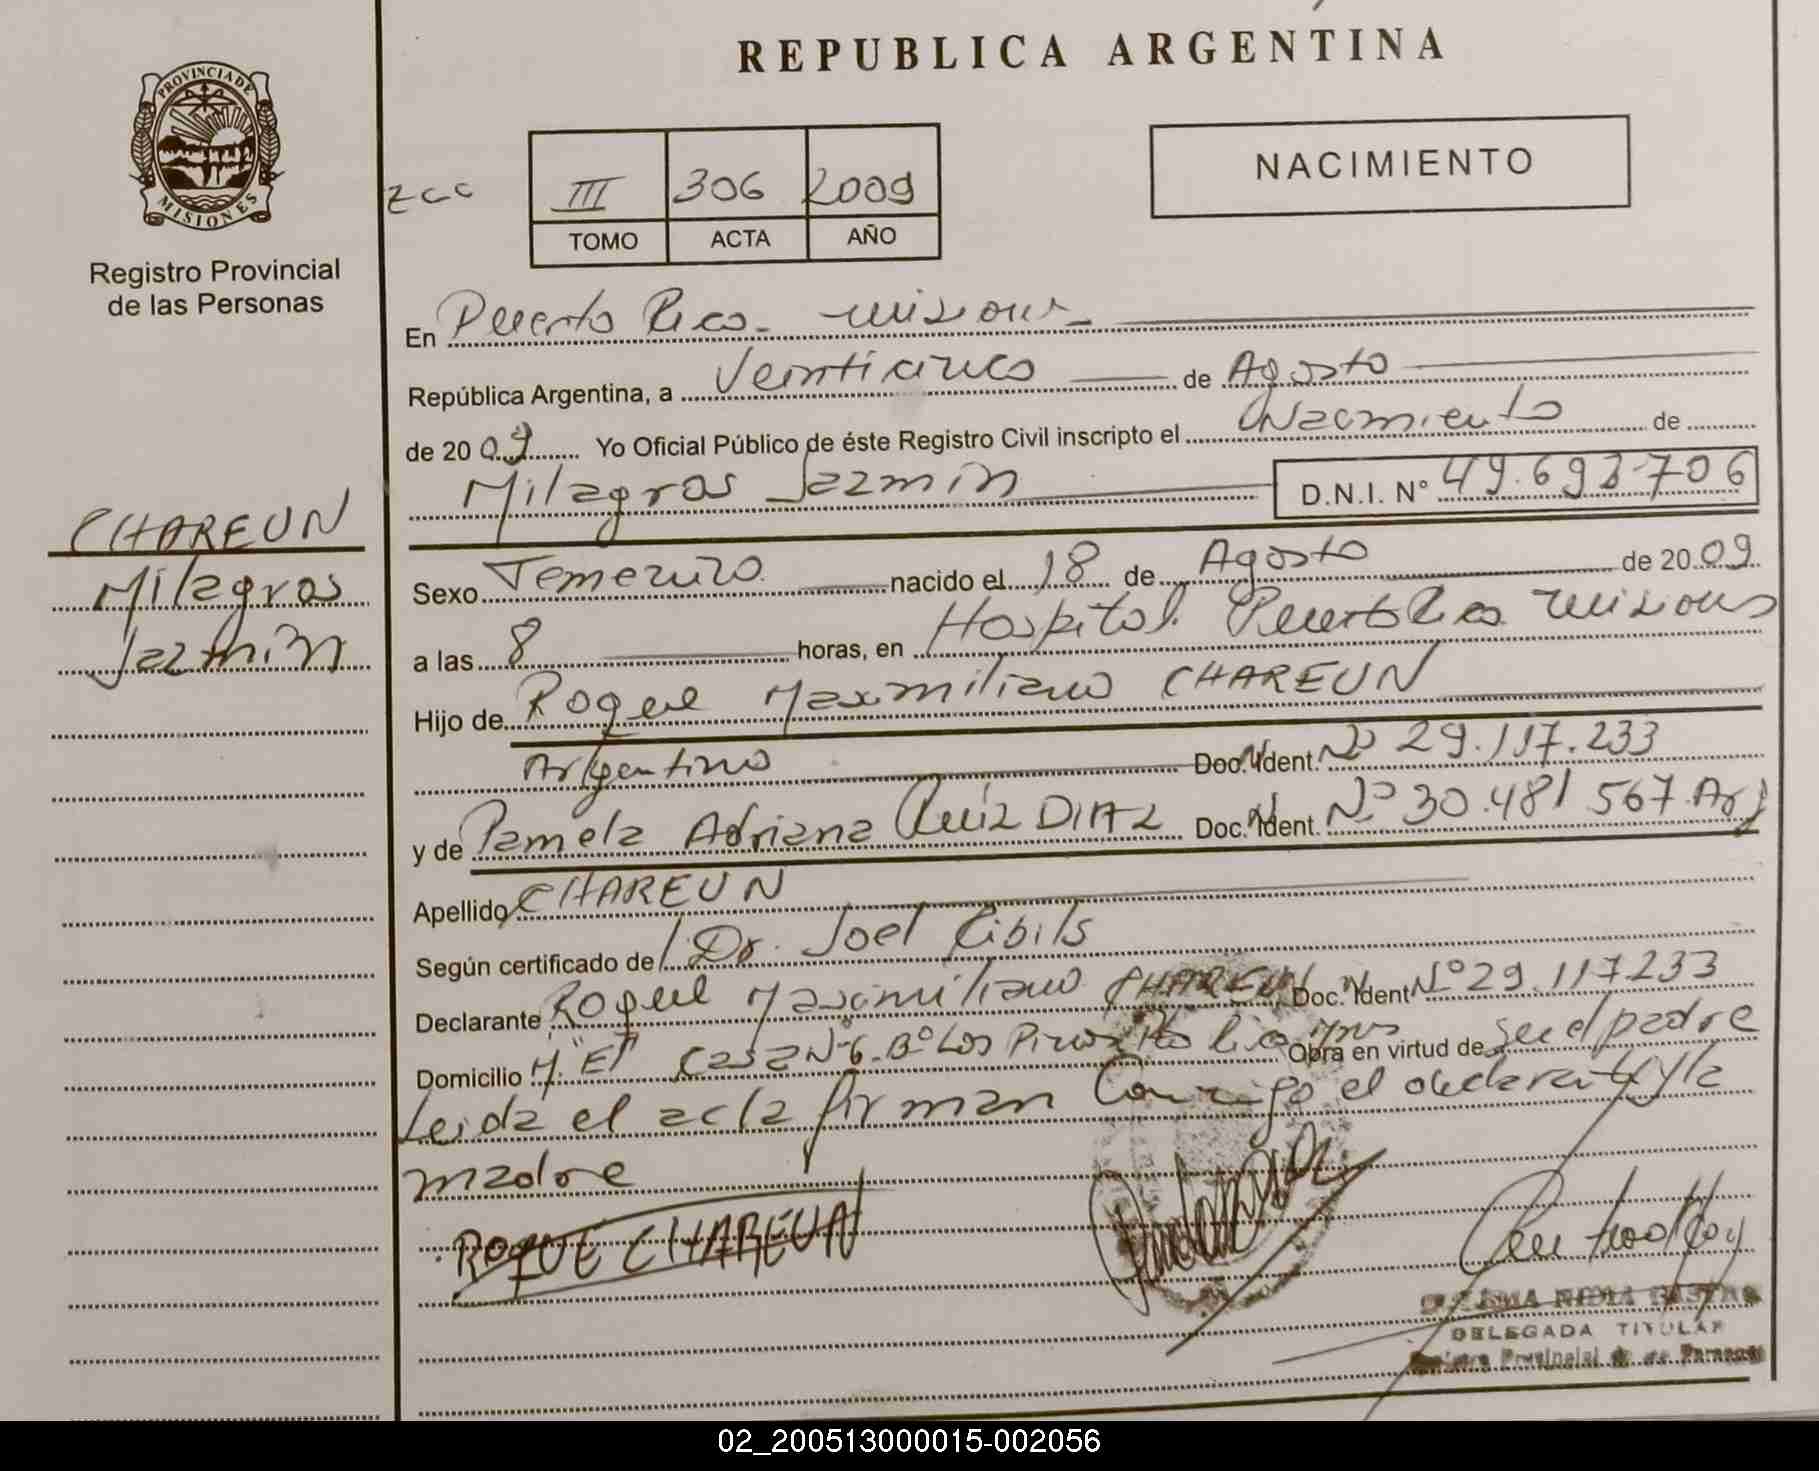 REPUBLICA ARGENTINA
PROVINCIA DE
MISIONES
Registro Provincial
de las Personas
III 306 2009
TOMO ACTA AÑO
NACIMIENTO
En Puerto Rico - Misiones
República Argentina, a Veinticinco de Agosto
de 20 09 Yo Oficial Público de éste Registro Civil inscripto el Nacimiento de
Milagros Jazmín D.N.I. N° 49.693706
CHAREUN
Milagros
Jazmín
Sexo Femenino nacido el 18 de Agosto de 20 09
a las 8 horas, en Hospital Puerto Rico Misiones
Hijo de Roque Maximiliano CHAREUN
Argentino Doc. Ident. N° 29.117.233
y de Pamela Adriana Ruiz DIAZ Doc. Ident. N° 30.481 567 Arg
Apellido CHAREUN
Según certificado de Dr. Joel Cibils
Declarante Roque Maximiliano CHAREUN Doc. Ident N° 29.117233
Domicilio M. "E" Casa N° 6 B° Los Pinos Pto Rico Mnes Obra en virtud de Ser el padre
Leida el acta firman Conmigo el declarante y la
madre
ROQUE CHAREUN
DELEGADA TITULAR
02_200513000015-002056